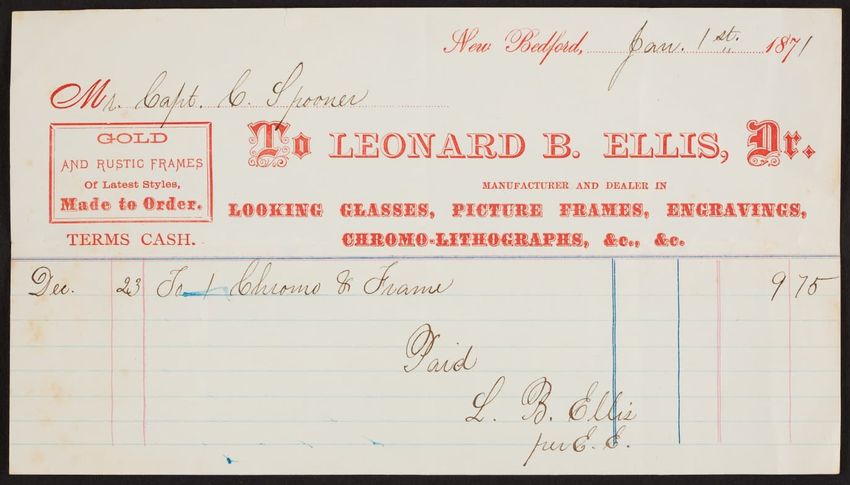 New Bedford, Jan. 1st. 1871
Mr. Capt. C. Spooner
To LEONARD B. ELLIS, Dr.
MANUFACTURER AND DEALER IN
LOOKING GLASSES, PICTURE FRAMES, ENGRAVINGS,
CHROMO-LITHOGRAPHS, &c., &c.
GOLD
AND RUSTIC FRAMES
Of Latest Styles,
Made to Order.
TERMS CASH.
Dec. 23 To 1 Chromo & Frame 9 75
Paid
L. B. Ellis
per E. E.